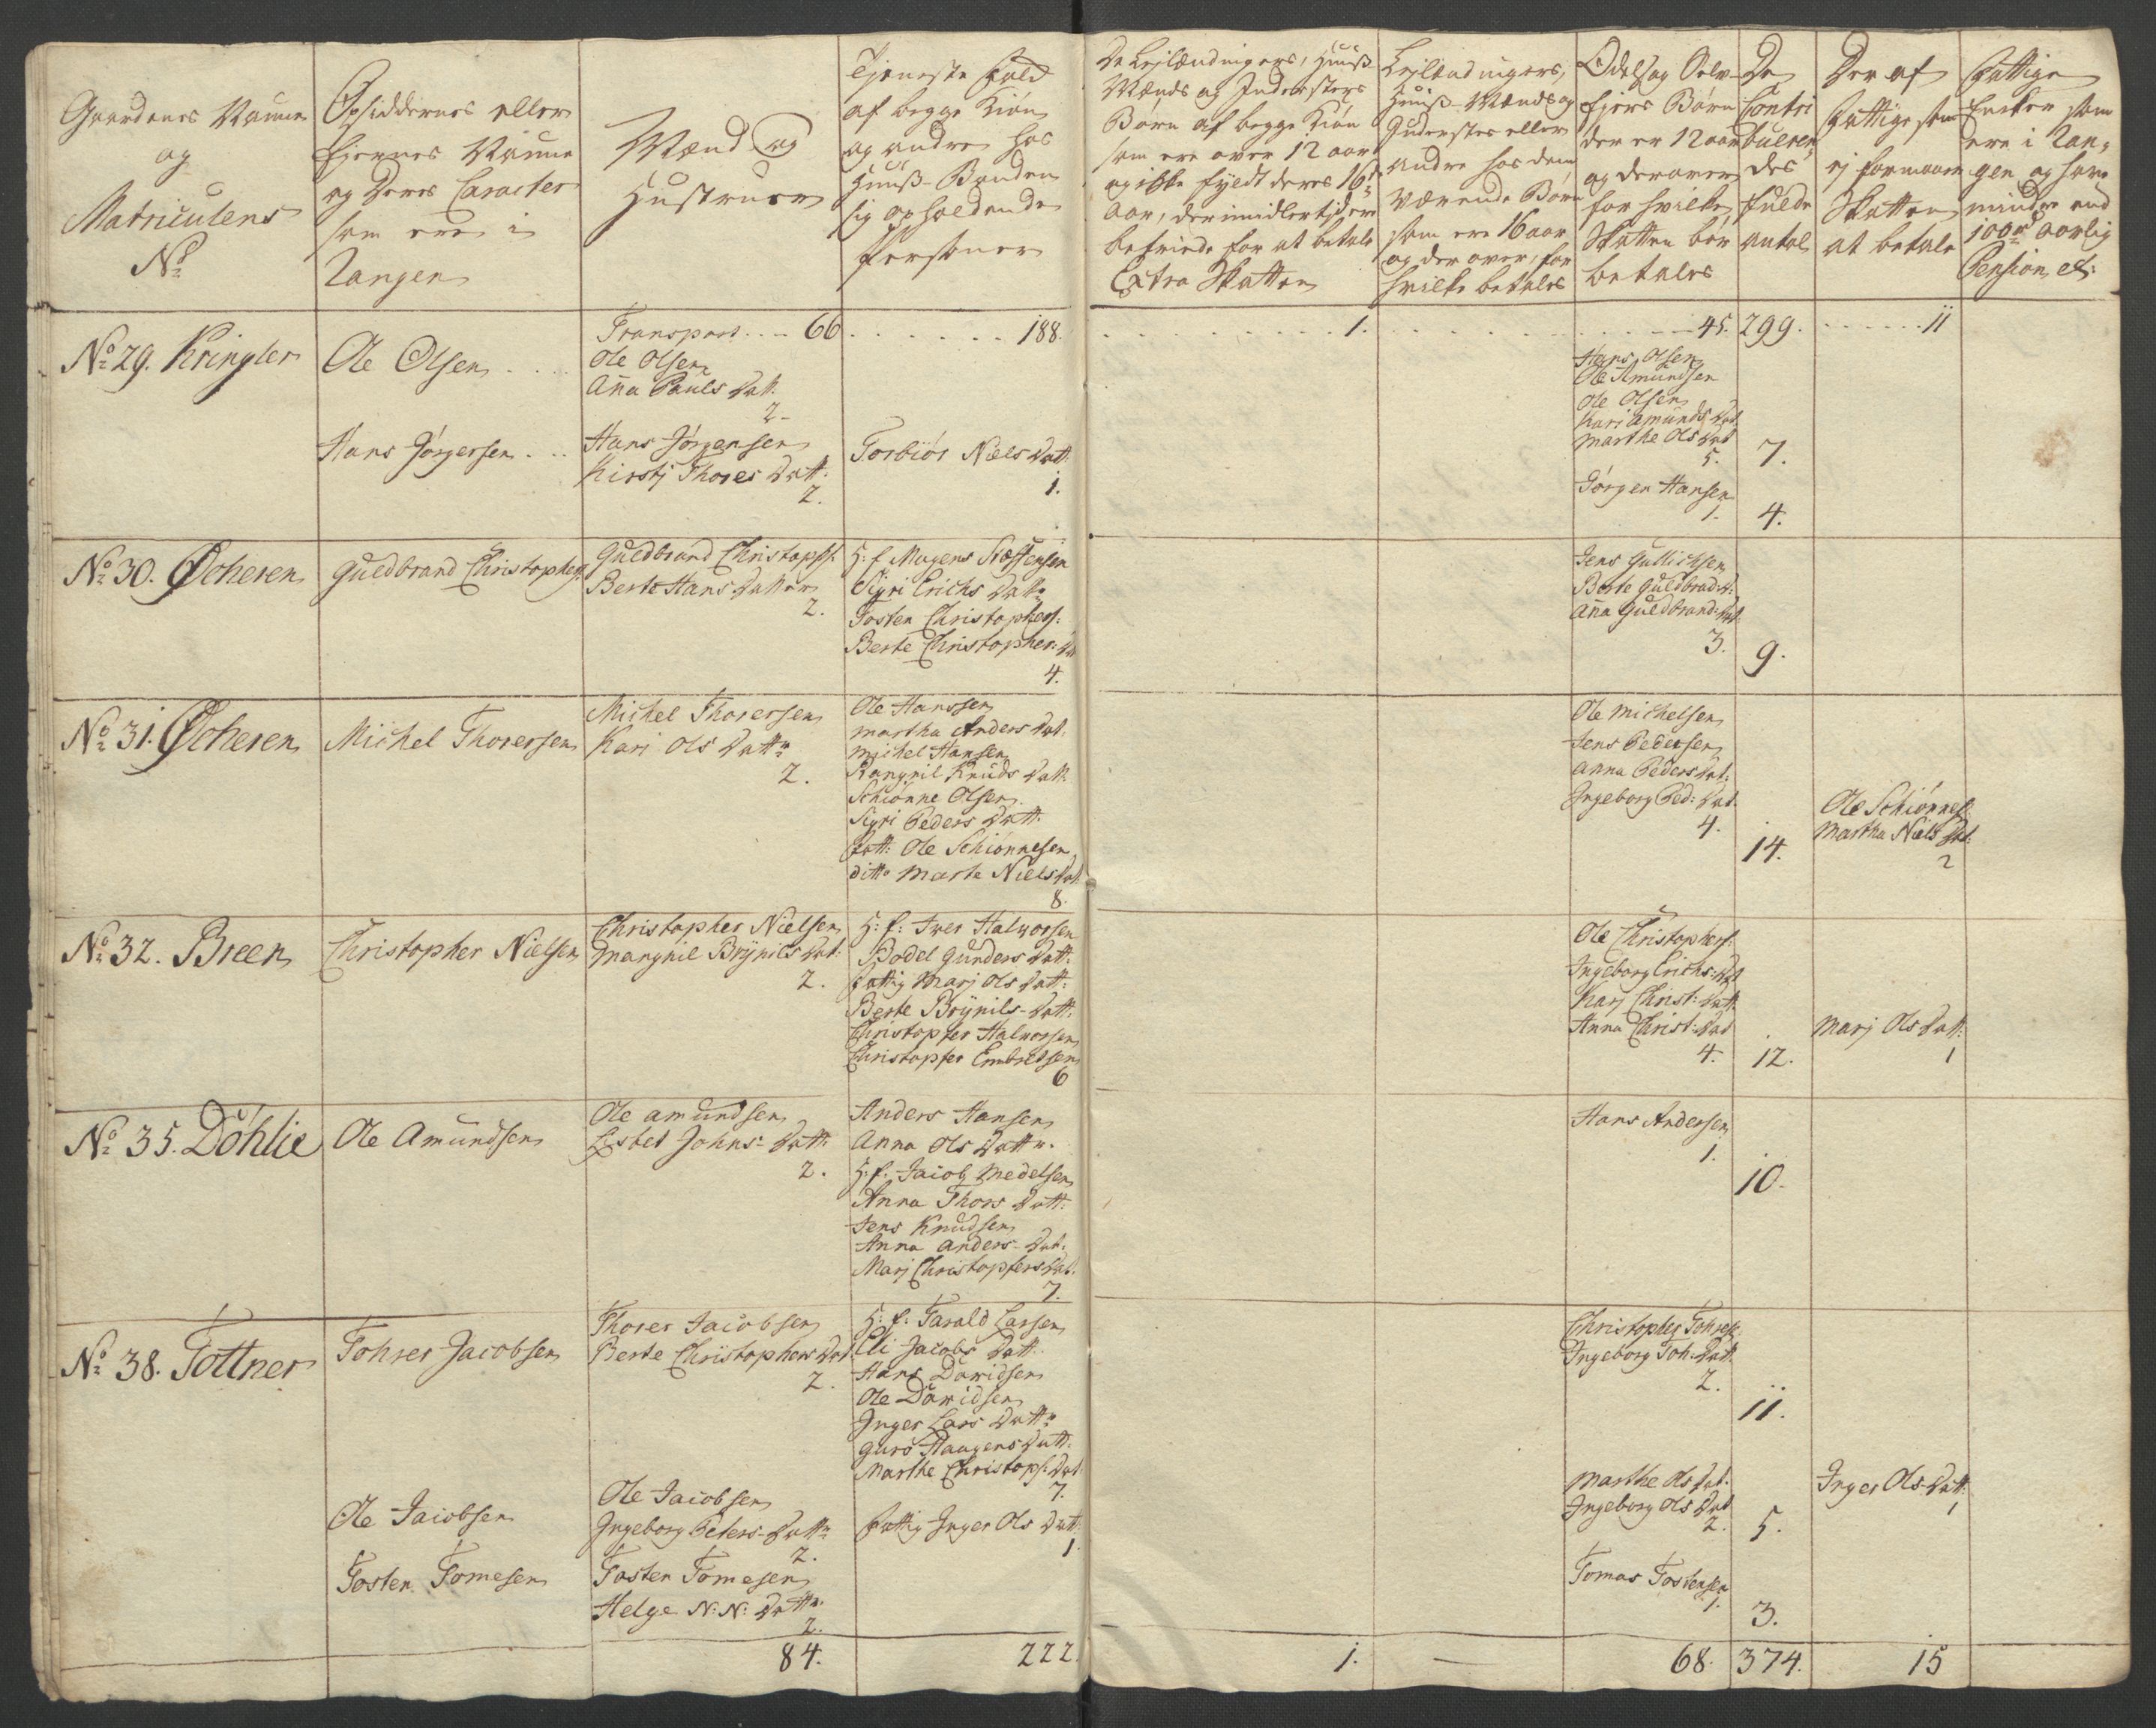 Gaardenes Naune
og
Matriculens
No
Opsiddernes eller
Ejernes Naune
og Deres Caracter
som ere i
Rangen
Mænd og
Hustruer
Tjeneste Folk
af begge Kiøn
og andre hos
Huuß-Bonden
sig opholdende
Personer
De Lejlændingers, Huuß
Mænds og Inderster
Børn af begge Kiøn
som ere over 12 aar
og ikke fyldt deres 16de
Aar, der imidlertid ere
befriede for at betale
Extra Skatten
Lejlændingers,
Huuß-Mænds og
Inderster eller
andre hos dem
værende Børn
som ere 16 aar
og der over, for
hvilke betales
Odels og Selv-
Ejers Børn
der er 12 aar
og derover
for hvilke
Skatten bør
betales
De
Contri
bueren
des
fulde
antal
Der af
Fattige som
ej formaar
Skatten
at betale
Fattige
Encker som
ere i Ran-
gen og have
mindre end
100rd aarlig
Pension etc:
Transport .... 66 . . . . . . 188. . . . . . . . . 1. . . . . . . 45. 299. . . . . . 11
No 29. Kringler
Ole Olsen . . .
Ole Olsen
Anna Pauls Datt:
2
Hans Olsen
Ole Amundsen
Ole Olsen
Kari Amunds Dat
Marthe Ols Dat
5. 7.
Hans Jørgersen . . .
Hans Jørgensen
Kirstj Thores Datt:
2.
Torbiør Niels Datt:
1.
Jørgen Hansen
1. 4.
No 30. Øcheren
Guldbrand Christophers:
Guldbrand Christophs:
Berte Hans Datter
2.
H: f Mogens Stæffensen
Sigri Erichs Dattr
Tosten Christophers:
Berte Christopher: Da
4.
Jens Gullichsen
Berte Guldbrad: d:
Anna Guldbrand: Dat
3. 9.
No 31. Øcheren
Michel Thorersen
Michel Thorersen
Kari Ols Dattr
2.
Ole Hanssen
Martha Anders Dat.
Michel Hansen
Rangnil Knuds Datt:
Schiønne Olsen
Sigri Peders Datt:
Fatt: Ole Schiønnesen
ditto Marte Niels Dat:
8.
Ole Michelsen
Jens Pedersen
Anna Peders Dat:
Ingeborg Ped: Dat:
4. 14.
Ole Schiønnes:
Martha Niels Dat:
2
No 32. Breen
Christopher Nielsen
Christopher Nielsen
Mangnil Brynils Dat:
2.
H: f: Iver Halvorsen
Bodel Gunders Datt:
Fattig Marj Ols Datt:
Berte Brynils-Datt:
Christopfer Halvorsen
Christopfer Embretsen
6
Ole Christophers:
Ingeborg Erichs: Dat
Karj Christ: Datt
Anna Christ: Dat
4. 12.
Marj Ols Datt:
1
No 35. Döhlie
Ole Amundsen
Ole Amundsen
Lisbet Johns-Datt:
2.
Anders Hansen
Anna Ols Dattr.
H: f: Jacob Medelsen
Anna Thors Datt:
Jens Knudsen
Anna Anders-Dat:
Marj Christopfers Dat.
7.
Hans Andersen
1. 10.
No 38. Tottner
Tohrer Jacobsen
Thorer Jacobsen
Berte Christophers Dat.
2.
H: f: Tarald Larsen
Eli Jacobs Datt:
Hans Davidsen
Ole Davidsen
Inger Lars Dattr
Guro Haagens Datt:
Marthe Christoph: Dat.
7.
Christopher Tohres:
Ingeborg Toh: Datt
2. 11.
Ole Jacobsen
Ole Jacobsen
Ingeborg Peters-Dattr
2.
Fattig Inger Ols Dat:
1
Marthe Ols Dat.
Ingeborg Ols Dat
2. 5.
Inger Ols-Datt:
1
Tosten Tomesen
Tosten Tomesen
Helge N: N: Dattr.
2.
Tomas Tostensen
1. 3.
84. 222. 1. — 68. 374. 15